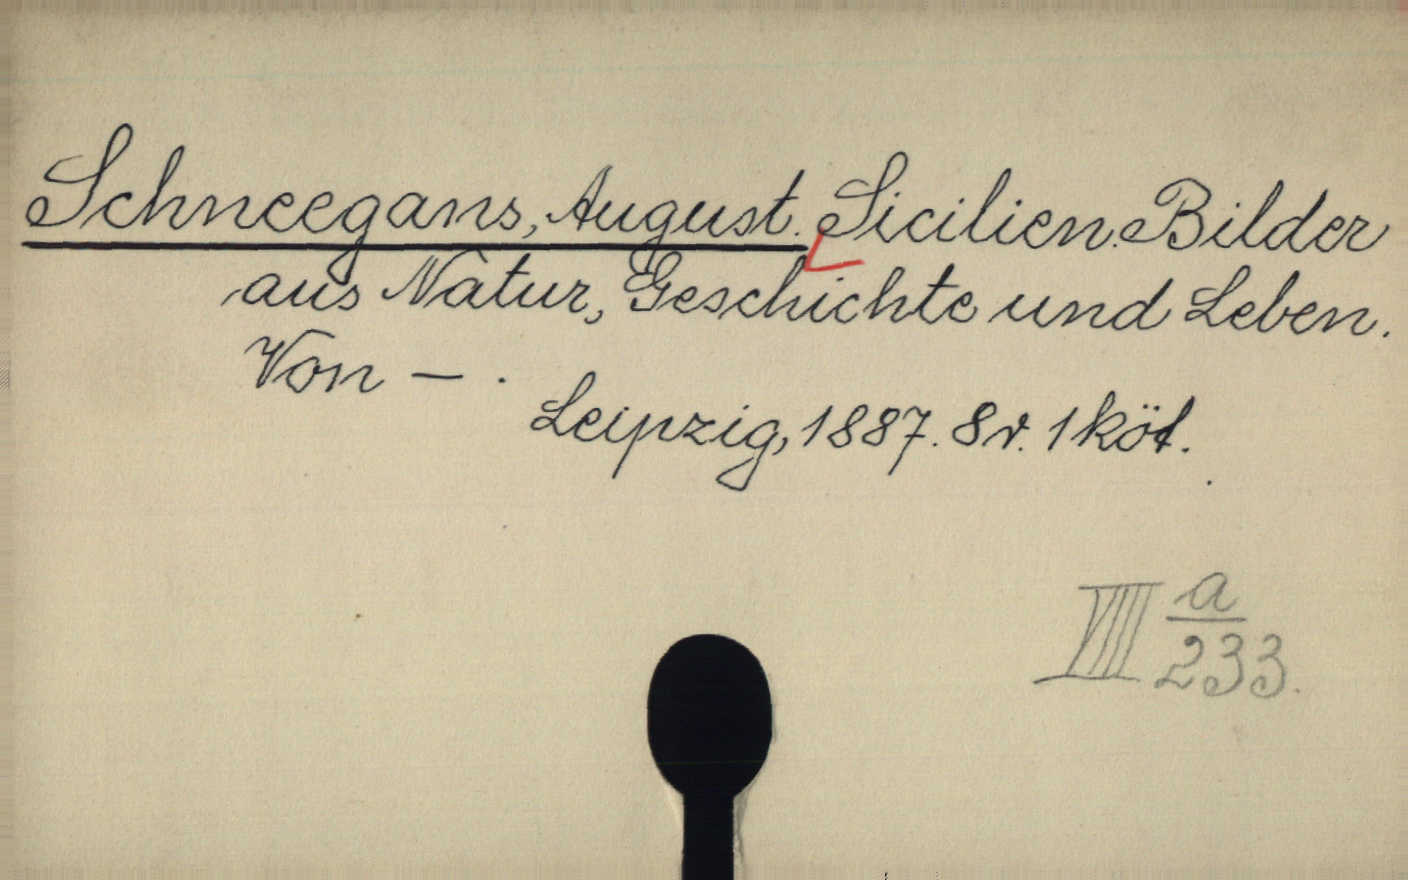 Schneegans, August. Sicilien. Bilder
aus Natur, Geschichte und Leben.
Von — .
Leipzig, 1887. 8r. 1 köt.
VIII a/233.